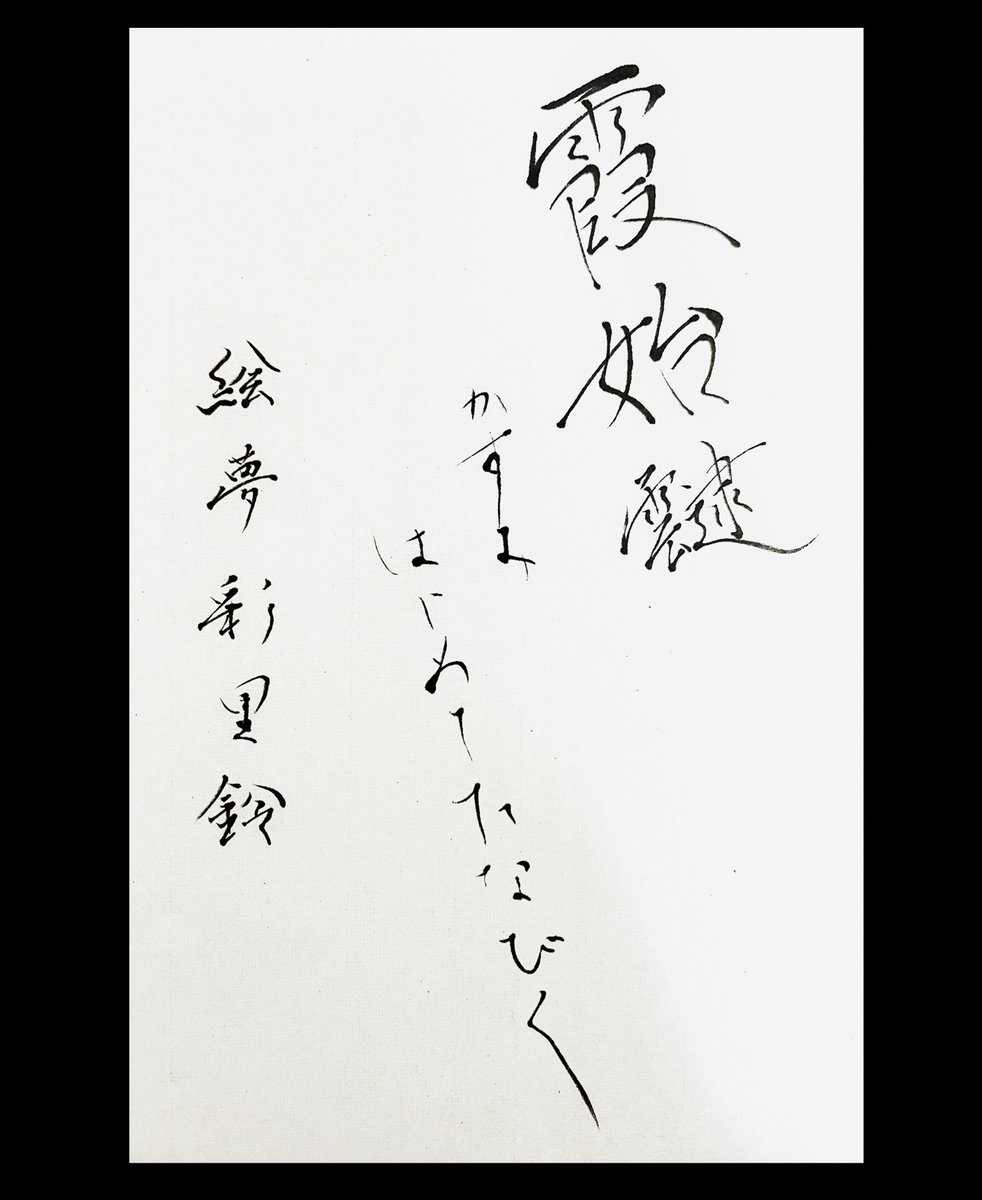 霞始靆
かすみ
はじめてたなびく
絵夢彩里鈴